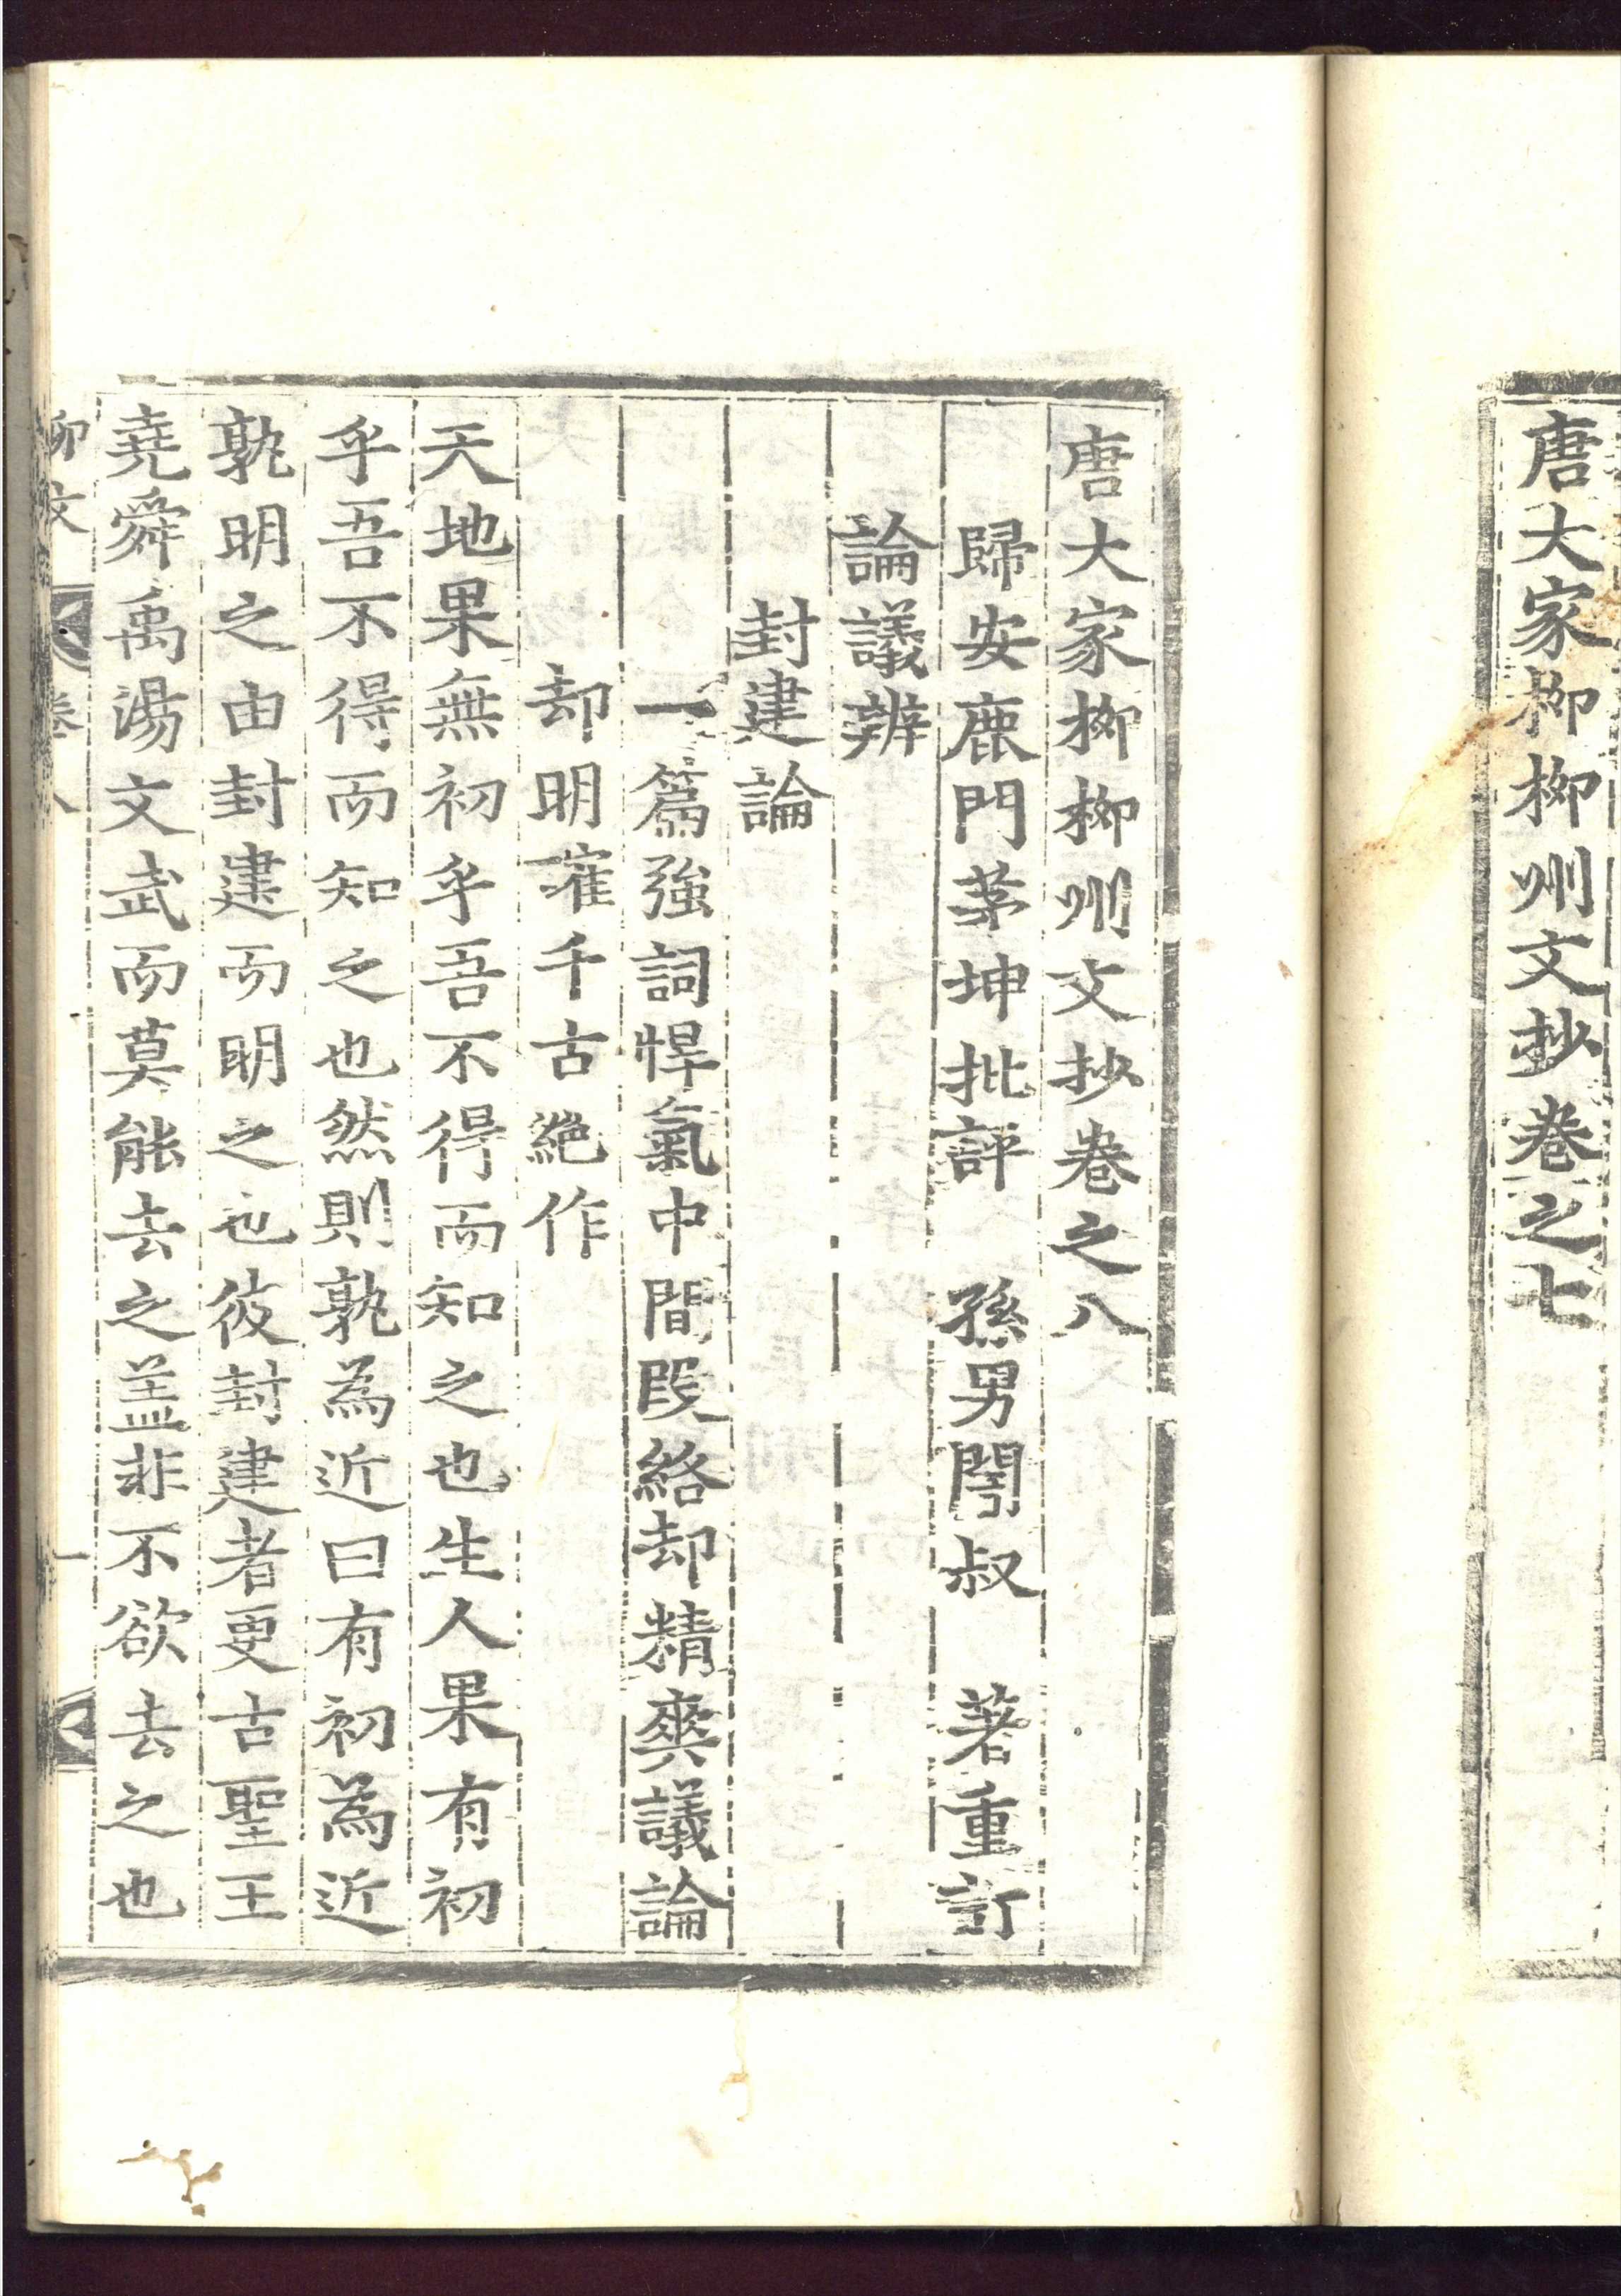 唐大家柳柳州文抄卷之七
唐大家柳柳州文抄卷之八
歸安鹿門茅坤批評　孫男闇叔　著重訂
論議辨
封建論
一篇強詞悍氣中間段絡却精爽議論
却明確千古絕作
天地果無初乎吾不得而知之也生人果有初
乎吾不得而知之也然則孰為近曰有初為近
孰明之由封建而明之也彼封建者更古聖王
堯舜禹湯文武而莫能去之蓋非不欲去之也
柳文　卷八　一